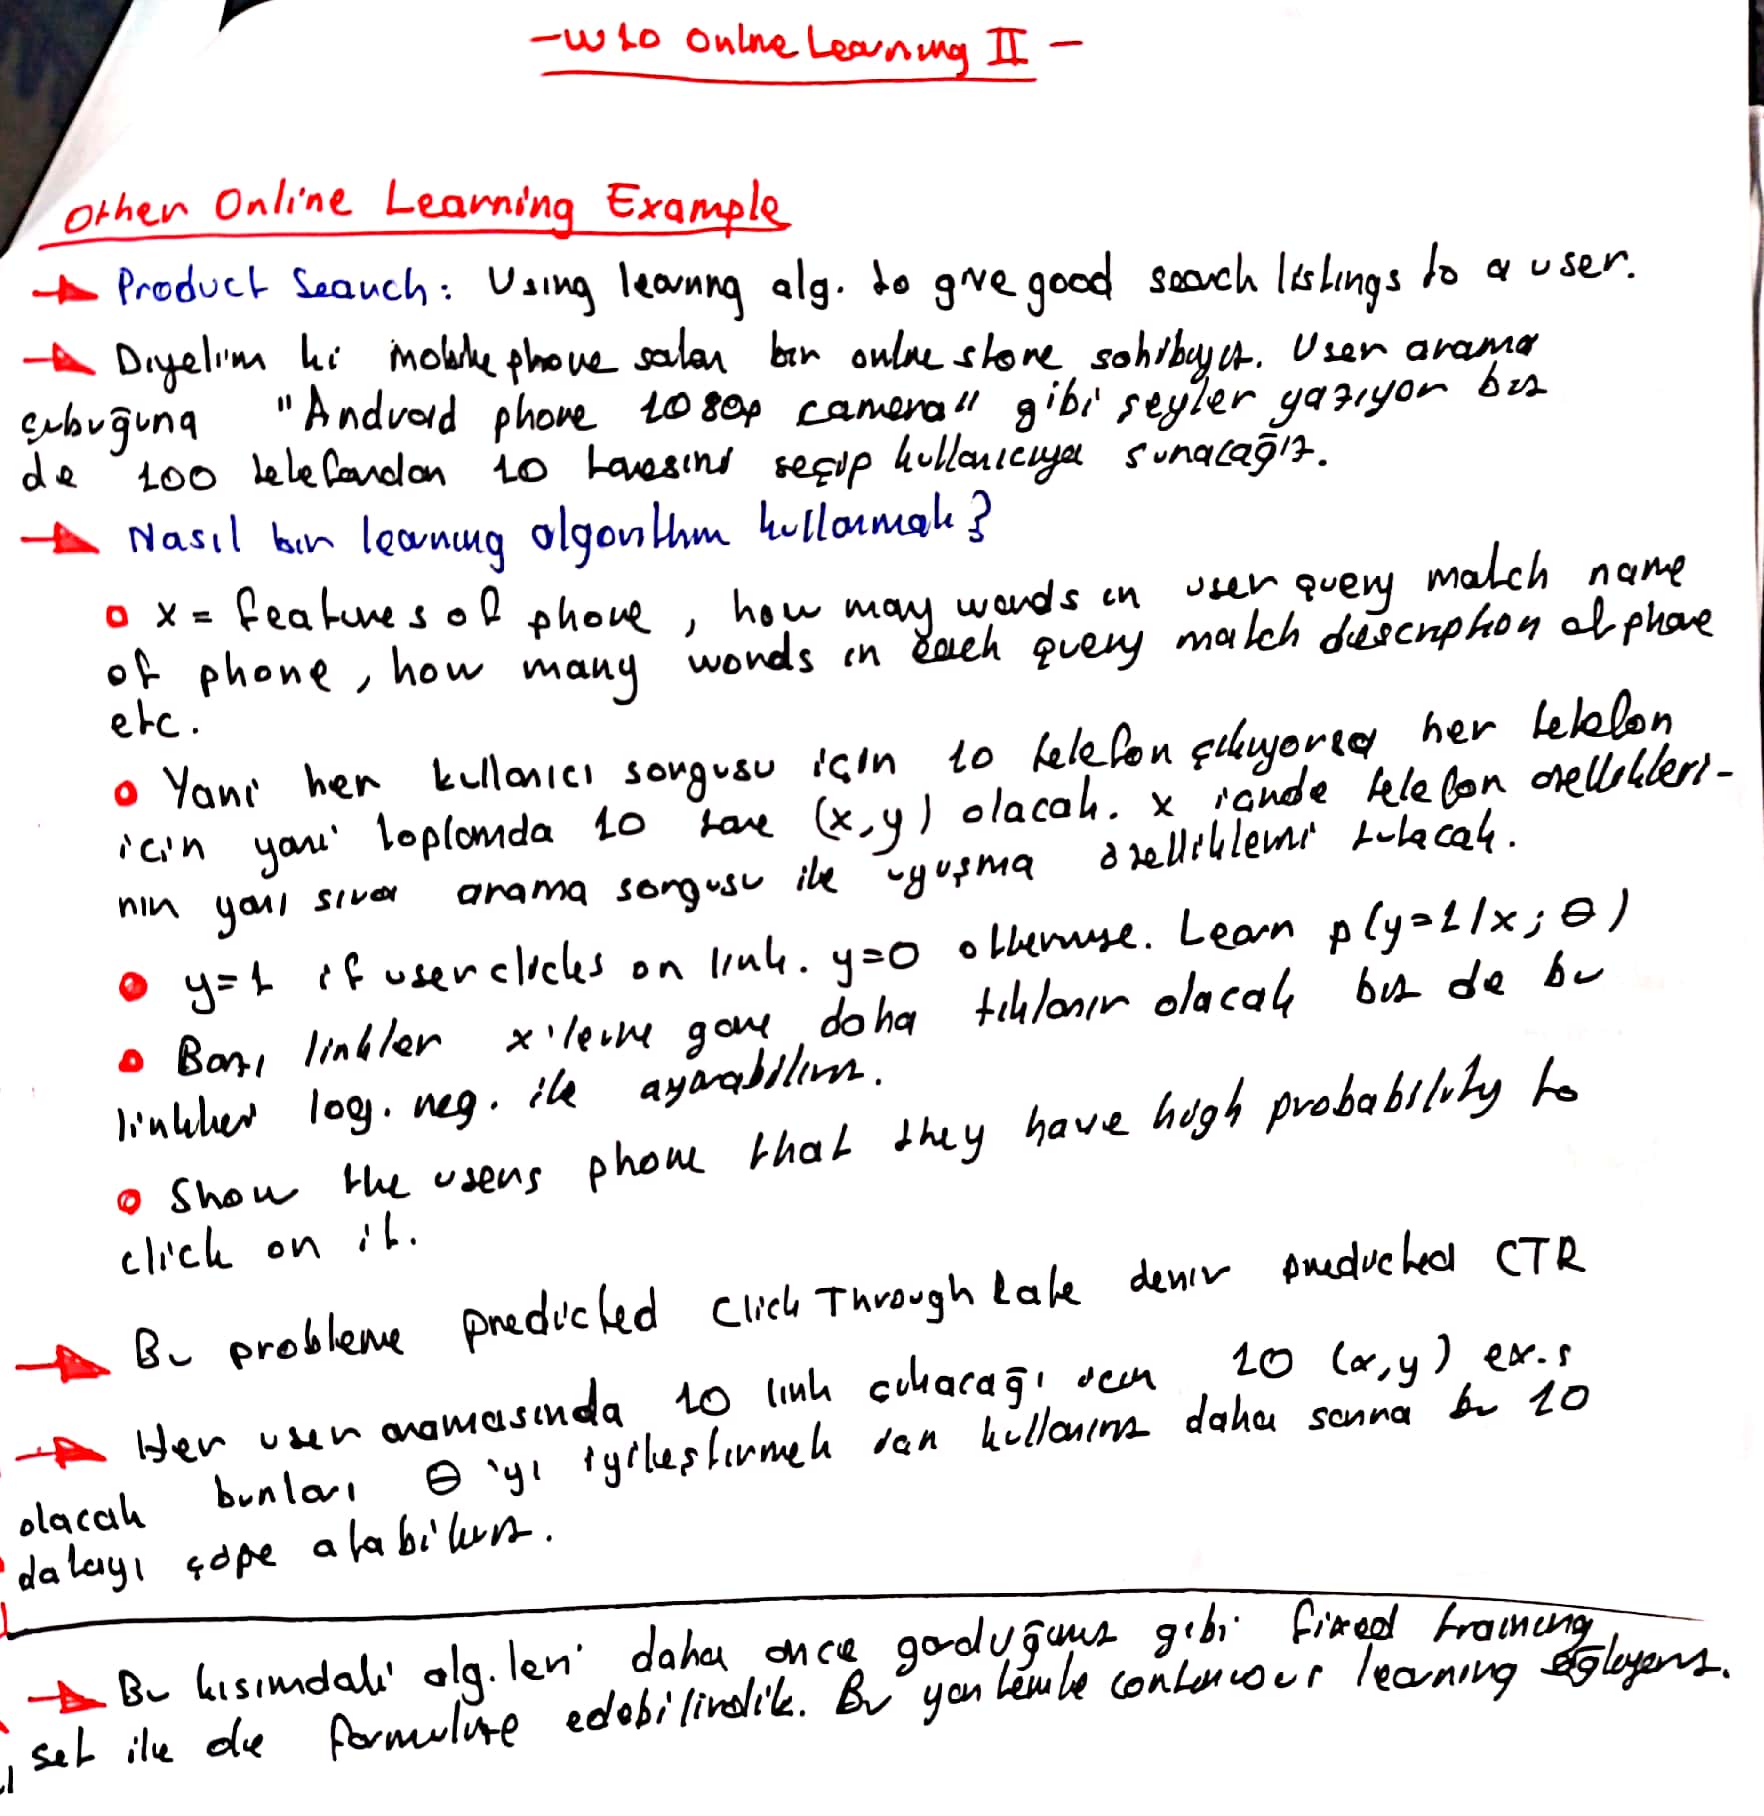 -W10 Online Learning II -
Other Online Learning Example
Product Search: Using learning alg. to give good search listings to a user.
Diyelim ki mobile phone satan bir online store sahibiyiz. User arama
çubuğuna "Android phone 1080p camera" gibi şeyler yazıyor biz
de 100 telefondan 10 tanesini seçip kullanıcıya sunacağız.
Nasıl bir learning algorithm kullanmalı?
x = features of phone, how many words in user query match name
of phone, how many words in each query match description of phone
etc.
Yani her kullanıcı sorgusu için 10 telefon çıkıyorsa her telefon
için yani toplamda 10 tane (x,y) olacak. x içinde telefon özellikleri-
nin yanı sıra arama sorgusu ile uyuşma özelliklerini tutacak.
y=1 if user clicks on link. y=0 otherwise. Learn p(y=1|x; θ)
Bazı linkler x'lerine göre daha tıklanır olacak biz de bu
linkleri log. reg. ile ayırabiliriz.
Show the users phone that they have high probability to
click on it.
Bu probleme predicted Click Through Rate denir predicted CTR
Her user aramasında 10 link çıkacağı için 10 (x,y) ex.s
olacak bunları θ'yı iyileştirmek için kullanırız daha sonra bu 10
datayı çöpe atabiliriz.
Bu kısımdaki alg.leri daha önce gördüğümüz gibi fixed training
set ile de formulize edebilirdik. Bu yöntemle continuous learning sağlıyoruz.